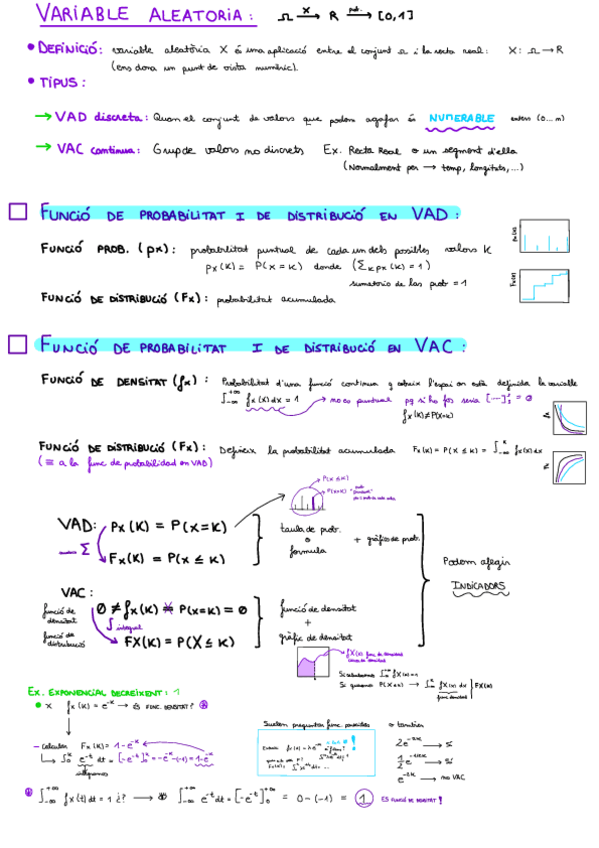 VARIABLE ALEATORIA: Ω —X→ R —prob.→ [0,1]
• DEFINICIÓ: variable aleatòria X és una aplicació entre el conjunt Ω i la recta real: X: Ω → R
(ens dona un punt de vista numèric).
• TIPUS:
→ VAD discreta: Quan el conjunt de valors que podem agafar és NUMERABLE enters (0...m)
→ VAC contínua: Grup de valors no discrets Ex. Recta Real o un segment d'ella
(Normalment per → temp, longituts,...)
FUNCIÓ DE PROBABILITAT I DE DISTRIBUCIÓ EN VAD:
FUNCIÓ PROB. (px): probabilitat puntual de cada un dels possibles valors K
px(K) = P(X=K) donde (Σk px(K) = 1)
sumatorio de las prob = 1
FUNCIÓ DE DISTRIBUCIÓ (Fx): probabilitat acumulada
FUNCIÓ DE PROBABILITAT I DE DISTRIBUCIÓ EN VAC:
FUNCIÓ DE DENSITAT (fx): Probabilitat d'una funció contínua q cobreix l'espai on està definida la variable
∫-∞+∞ fx(x)dx = 1 → no es puntual pq si ho fos seria = 0
fx(K)≠P(X=K)
FUNCIÓ DE DISTRIBUCIÓ (Fx): Defineix la probabilitat acumulada Fx(K) = P(X ≤ K) = ∫-∞K fx(x)dx
(≡ a la func de probabilidad en VAD)
P(X≤K)
P(X=K)
VAD: Px(K) = P(X=K)
Σ Fx(K) = P(X ≤ K)
taula de prob.
o
formula
+ gràfics de prob.
VAC:
funció de densitat 0 ≠ fx(K) P(X=K) = 0
∫ integral
funció de distribució FX(K) = P(X ≤ K)
funció de densitat
+
gràfic de densitat
Podem afegir
INDICADORS
Ex. EXPONENCIAL DECREIXENT: 1
• X fx(K) = e^-K → és FUNC. DENSITAT?
– calcular Fx(K) = 1-e^-K
∫0K e^-t dt = [-e^-t]0K = -e^-K-(-1) = 1-e^-K
∫-∞+∞ fx(t)dt = 1 ¿? → ∫-∞+∞ e^-t dt = [-e^-t]0+∞ = 0-(-1) = 1 ES FUNCIÓ DE DENSITAT!
Suelen preguntar func. parecidas
o també
2e^-2K → Sí
1/2 e → Sí
e^-2K → no VAC